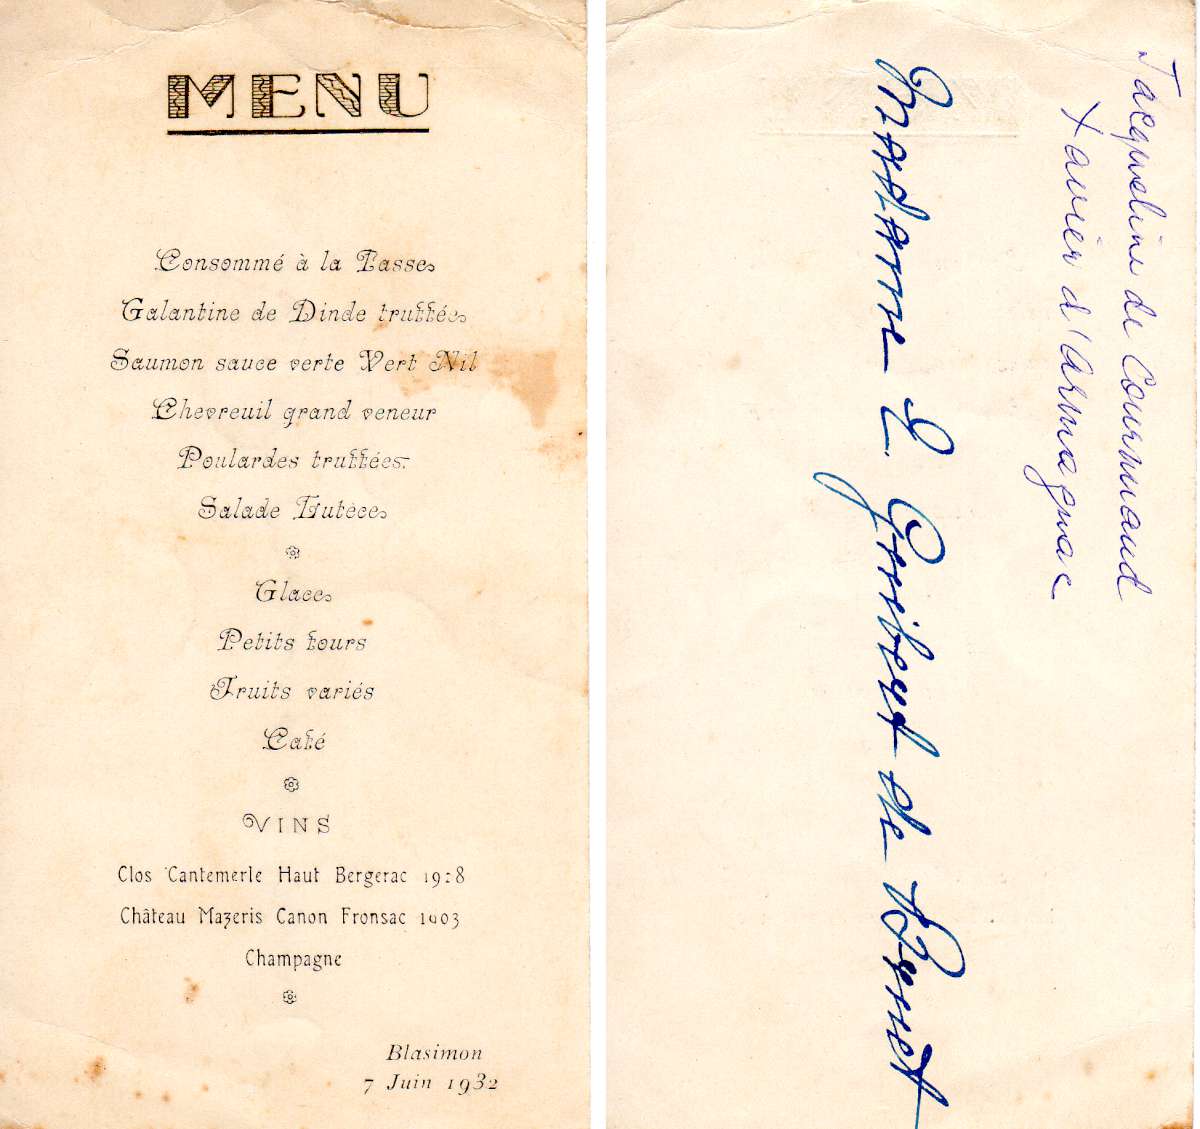 MENU
Consommé à la Tasse
Galantine de Dinde truffée
Saumon sauce verte Vert Nil
Chevreuil grand veneur
Poulardes truffées
Salade Lutèce
Glace
Petits fours
Fruits variés
Café
VINS
Clos Cantemerle Haut Bergerac 1928
Château Mazeris Canon Fronsac 1903
Champagne
Blasimon
7 Juin 1932
Jacqueline de Courmiaud
Xavier d'Armagnac
Madame L. Guibert de Brunet